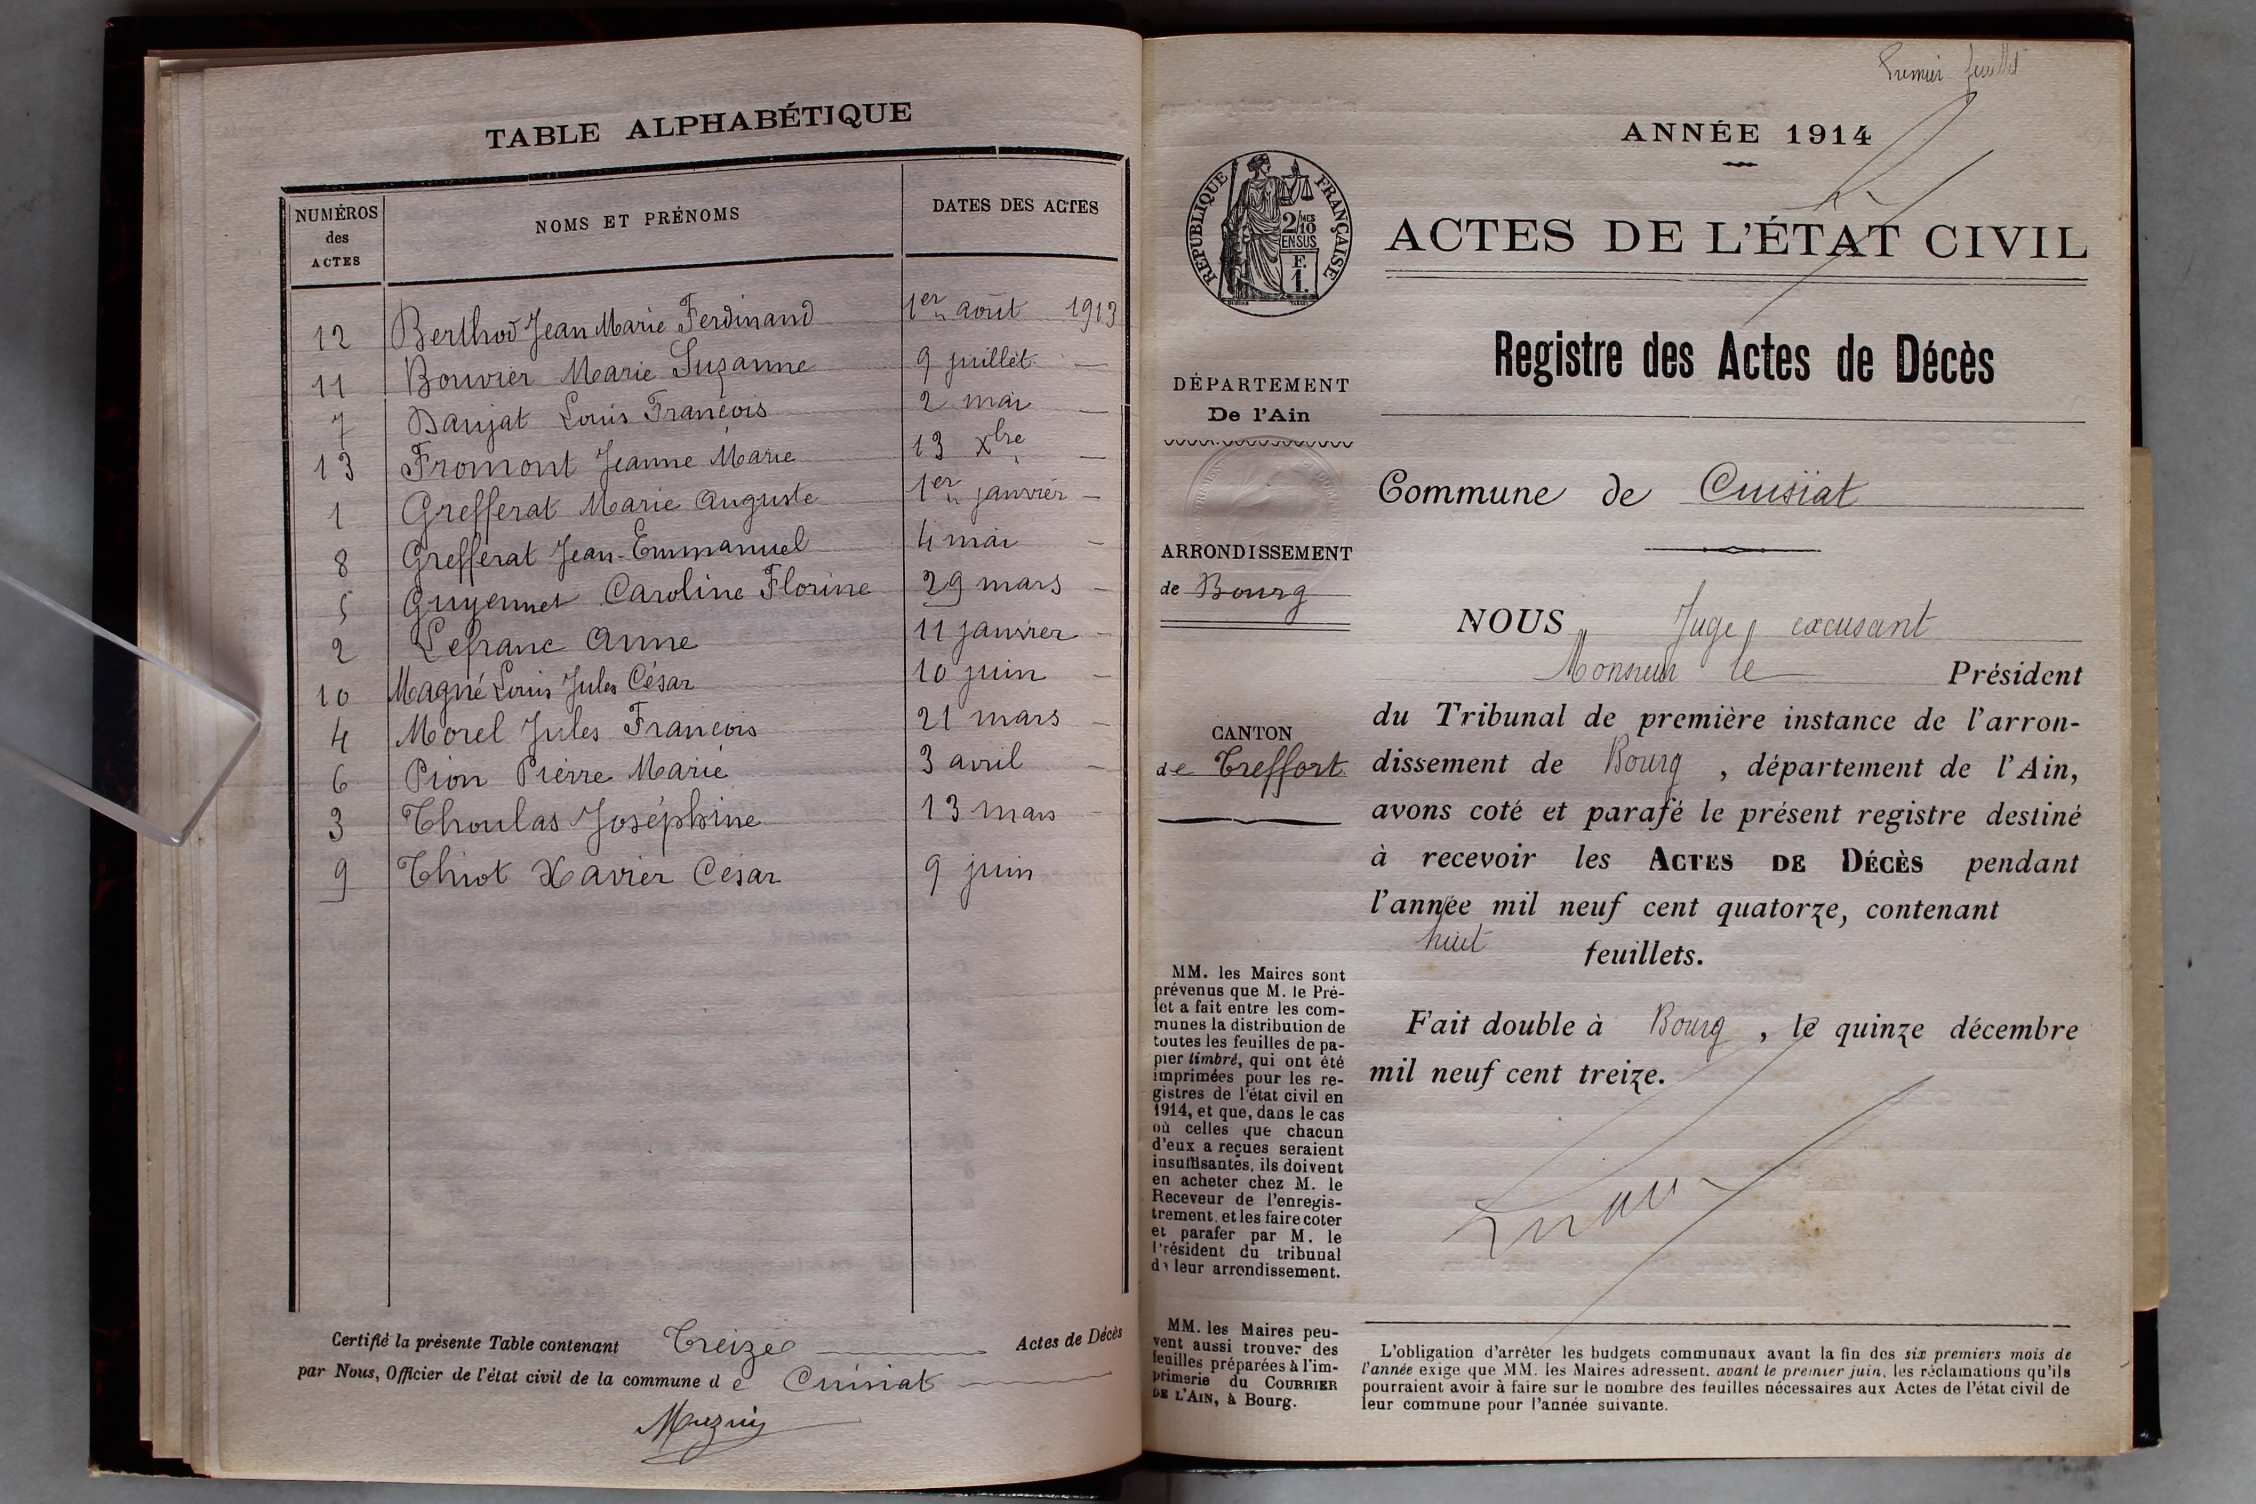 TABLE ALPHABÉTIQUE
NUMÉROS des ACTES
NOMS ET PRÉNOMS
DATES DES ACTES
12 Berthod Jean Marie Ferdinand 1er août 1913
11 Bouvier Marie Suzanne 9 juillet —
7 Daujat Louis François 2 mai —
13 Fromont Jeanne Marie 13 Xbre —
1 Grefferat Marie Auguste 1er janvier —
8 Grefferat Jean-Emmanuel 4 mai —
5 Guyennet Caroline Florine 29 mars —
2 Lefranc Anne 11 janvier —
10 Magné Louis Jules César 10 juin —
4 Morel Jules François 21 mars —
6 Pion Pierre Marie 3 avril —
3 Thoulas Joséphine 13 mars —
9 Thiot Xavier César 9 juin
Certifié la présente Table contenant Treize Actes de Décès
par Nous, Officier de l'état civil de la commune de Cuisiat
Premier feuillet
ANNÉE 1914
RÉPUBLIQUE FRANÇAISE
2/10 MES
EN SUS
F.
1.
ACTES DE L'ÉTAT CIVIL
Registre des Actes de Décès
DÉPARTEMENT
De l'Ain
Commune de Cuisiat
ARRONDISSEMENT
de Bourg
CANTON
de Treffort
NOUS Juge excusant
Monsieur le Président
du Tribunal de première instance de l'arron-
dissement de Bourg, département de l'Ain,
avons coté et parafé le présent registre destiné
à recevoir les ACTES DE DÉCÈS pendant
l'année mil neuf cent quatorze, contenant
huit feuillets.
Fait double à Bourg, le quinze décembre
mil neuf cent treize.
MM. les Maires sont
prévenus que M. le Pré-
fet a fait entre les com-
munes la distribution de
toutes les feuilles de pa-
pier timbré, qui ont été
imprimées pour les re-
gistres de l'état civil en
1914, et que, dans le cas
où celles que chacun
d'eux a reçues seraient
insuffisantes, ils doivent
en acheter chez M. le
Receveur de l'enregis-
trement, et les faire coter
et parafer par M. le
Président du tribunal
de leur arrondissement.
MM. les Maires peu-
vent aussi trouver des
feuilles préparées à l'im-
primerie du COURRIER
DE L'AIN, à Bourg.
L'obligation d'arrêter les budgets communaux avant la fin des six premiers mois de
l'année exige que MM. les Maires adressent, avant le premier juin, les réclamations qu'ils
pourraient avoir à faire sur le nombre des feuilles nécessaires aux Actes de l'état civil de
leur commune pour l'année suivante.